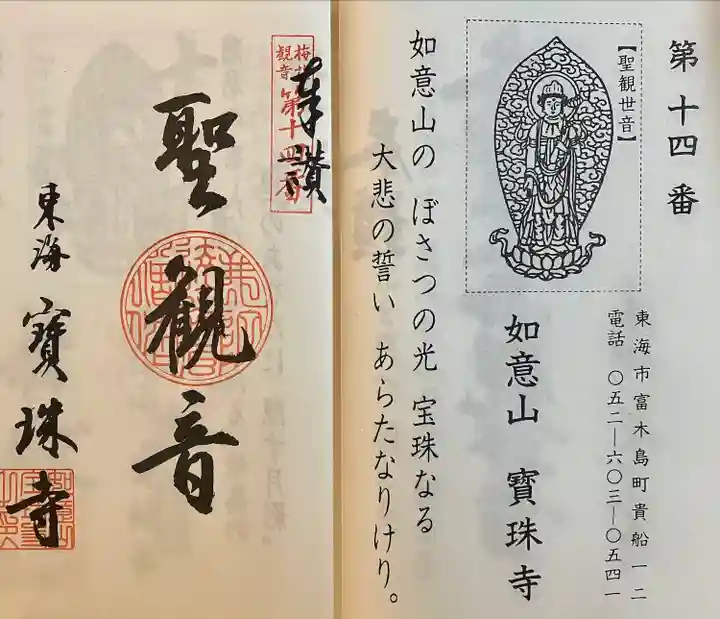 第十四番
【聖観世音】
東海市富木島町貴船一二
電話 〇五二―六〇三―〇五四一
如意山 寶珠寺
如意山の ぼさつの光 宝珠なる
大悲の誓い あらたなりけり。
奉讃
観音
第十四番
聖観音
東海 寶珠寺